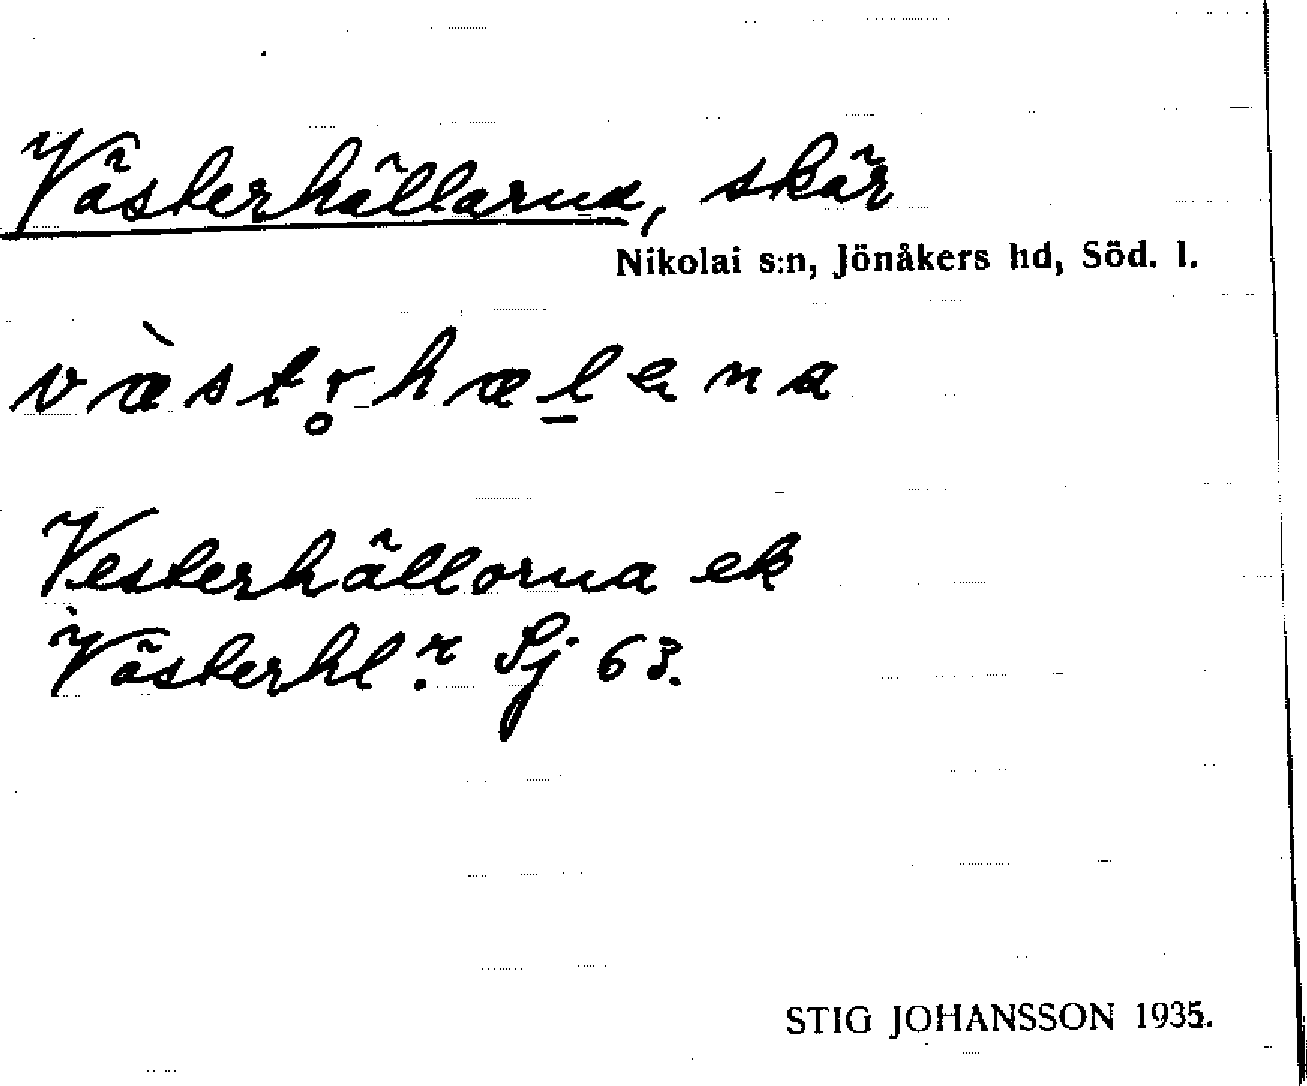 Västerhällarna, skär
Nikolai s:n, Jönåkers hd, Söd. l.
væ̀str̥hæl̠ana
Vesterhällorna ek
Västerhl:r Sj 63.
STIG JOHANSSON 1935.